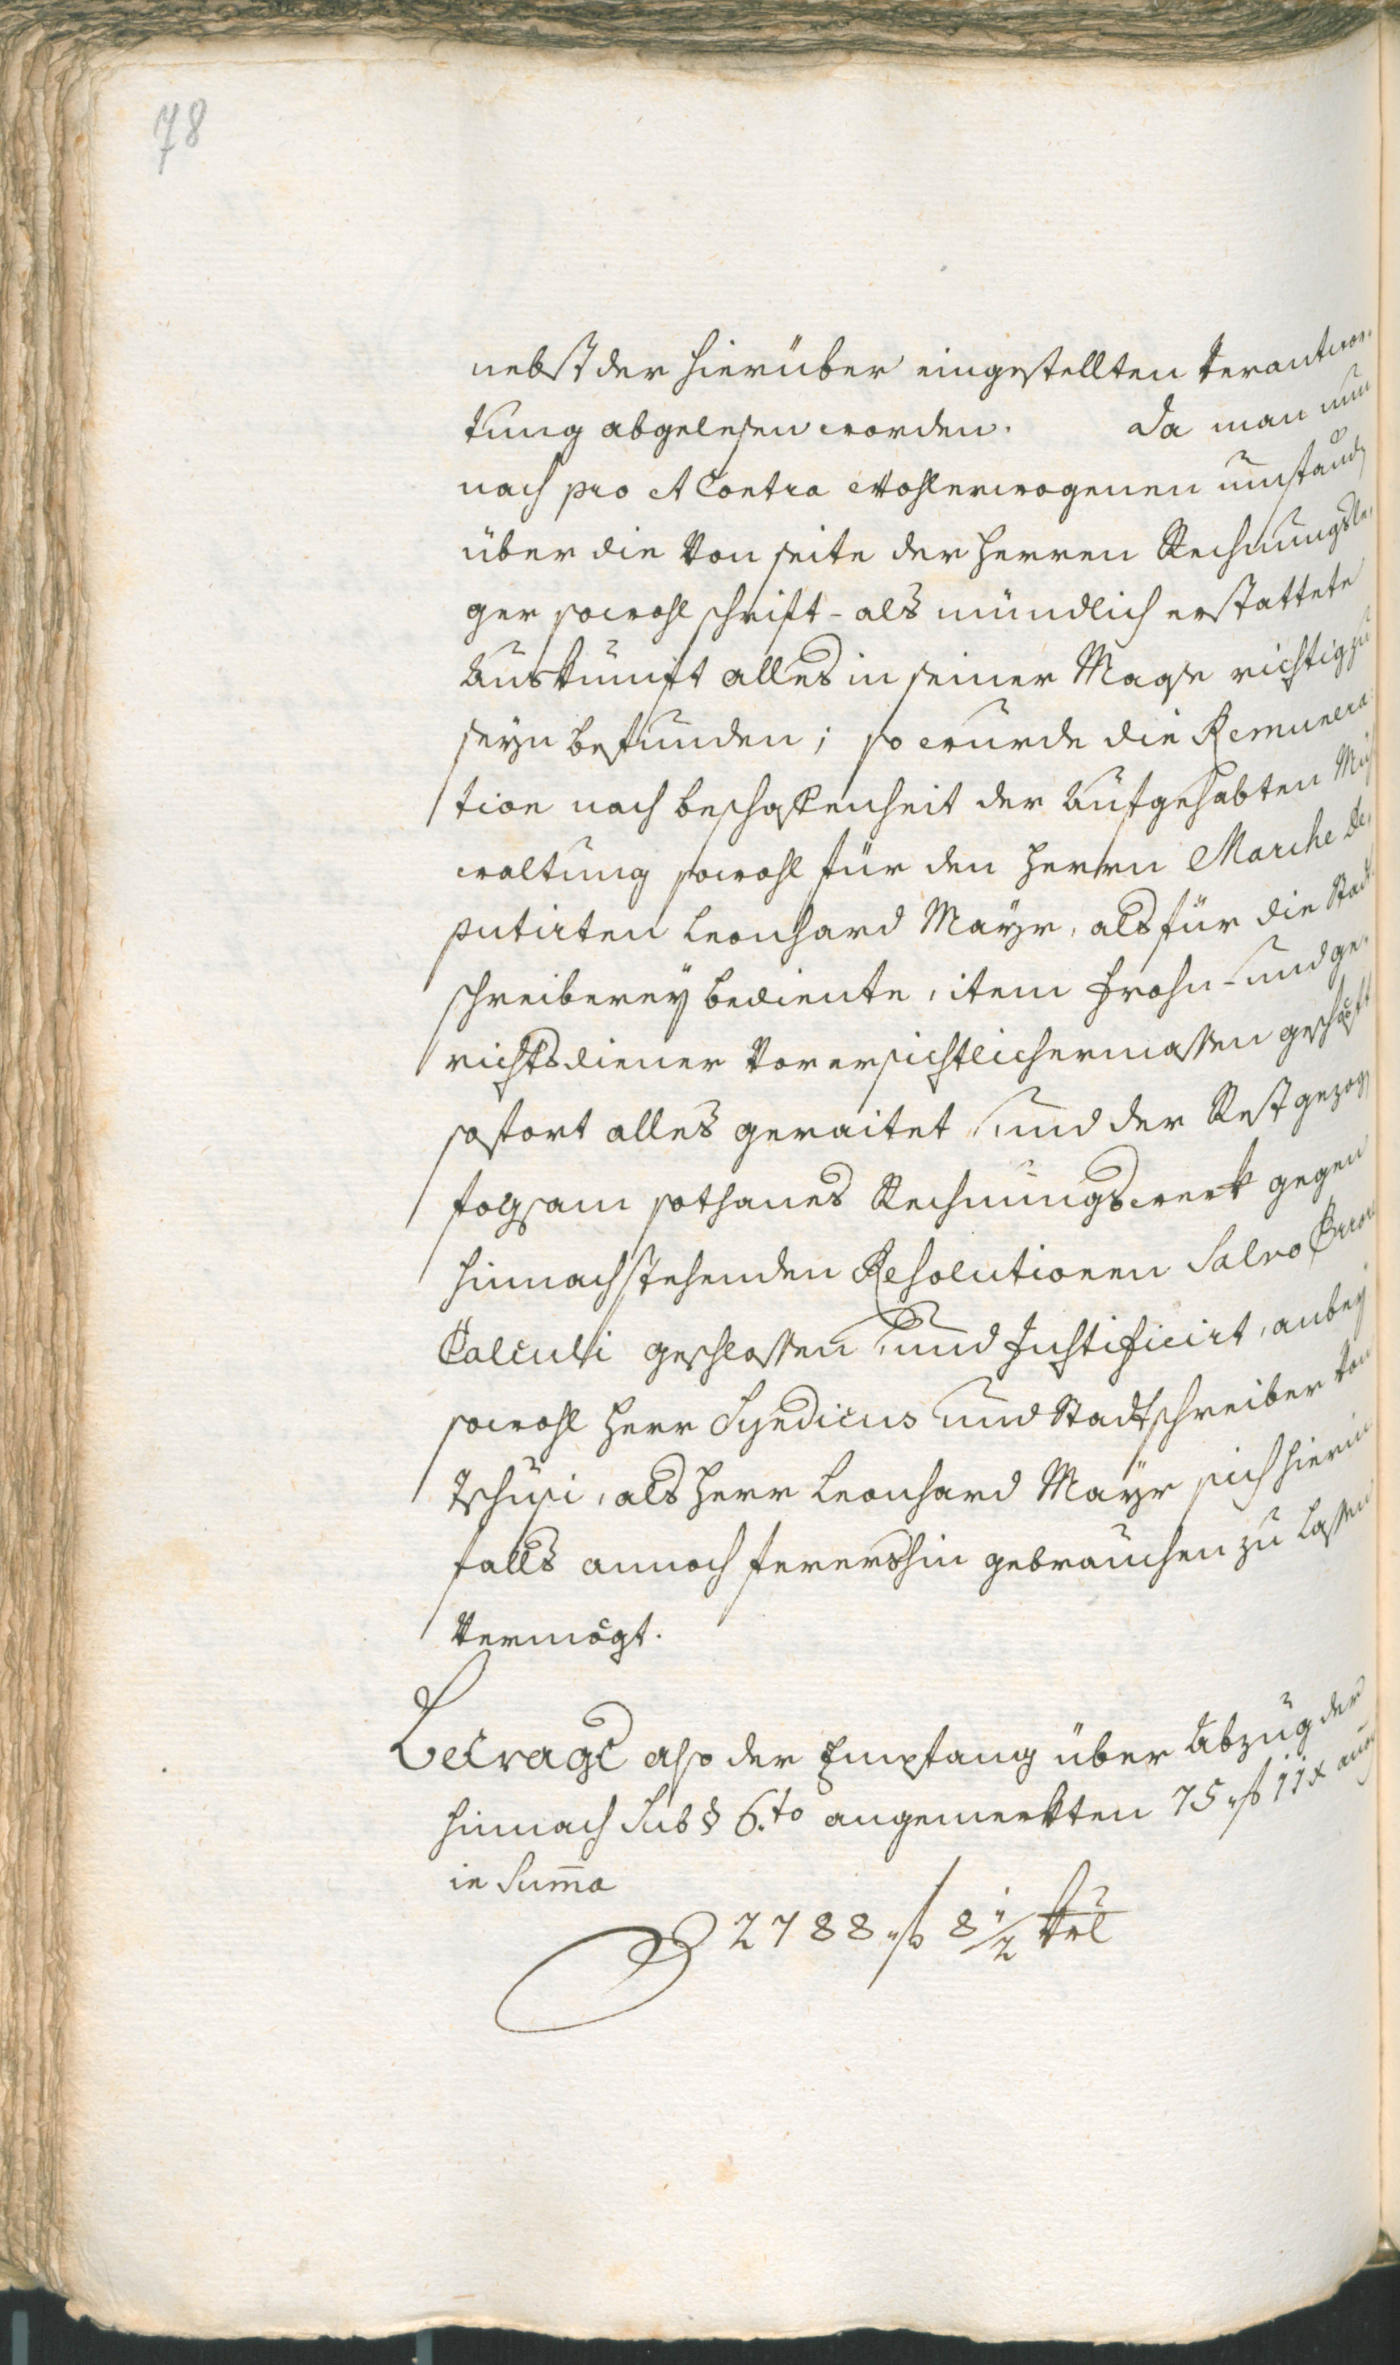 78
nebst der hierüber eingestellten Verantwor-
tung abgelesen worden. Da man nun
nach pro et Contra wohlerwogenen umständ
über die Von seite der Herren Rechnungsle-
ger sowohl schrift- als mündlich erstattete
Auskunft alles in seiner Maase richtig zu
seyn befunden; so wurde die Remunera
tion nach beschaffenheit der Aufgehabten Müh
waltung sowohl für den Herrn Marche De-
putirten Leonhard Mayr, als für die Stadt
schreiberey bediente, item Frohn- und ge-
richtsdiener Vorersichtlichermassen geschöpft
sofort alles geraitet, und der Rest gezog
folgsam sothanes Rechnungswerk gegen
hinnachstehenden Resolutionen Salvo Errore
Calculi geschlossen, und Justificirt, anbey
sowohl Herr Syndicus und Stadtschreiber Von
Tschusi, als Herr Leonhard Mayr sich hierin
falls annoch ferershin gebrauchen zu lassen
Vermögt.
Betragt also der Empfang über Abzug der
hinnach Sub § 6.to angemerkten 75 f 11 x
in Suma
2788 f 8 1/2